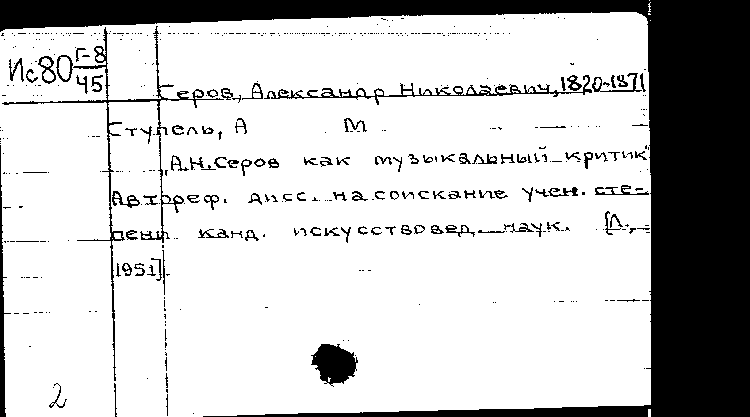 Ис80 Г-8
45
Серов, Александр Николаевич, 1820-1871
Ступель, А М
„А.Н.Серов как музыкальный критик"
Автореф. дисс. на соискание учен. сте-
пени канд. искусствовед. наук. [Л.,
1951].
2